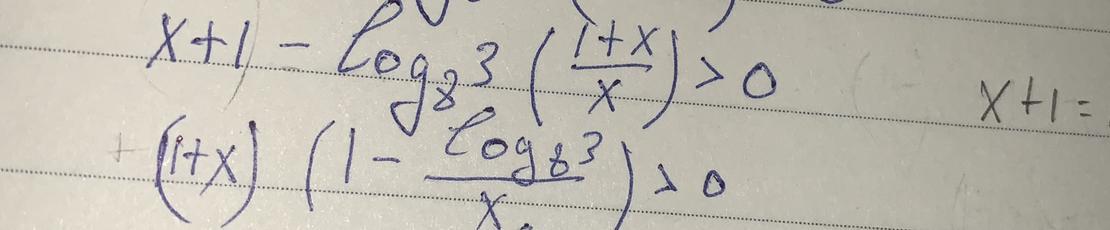 x+1 - log₈3 (1+x/x) > 0
x+1=
+ (1+x) (1 - log₈3/x) > 0